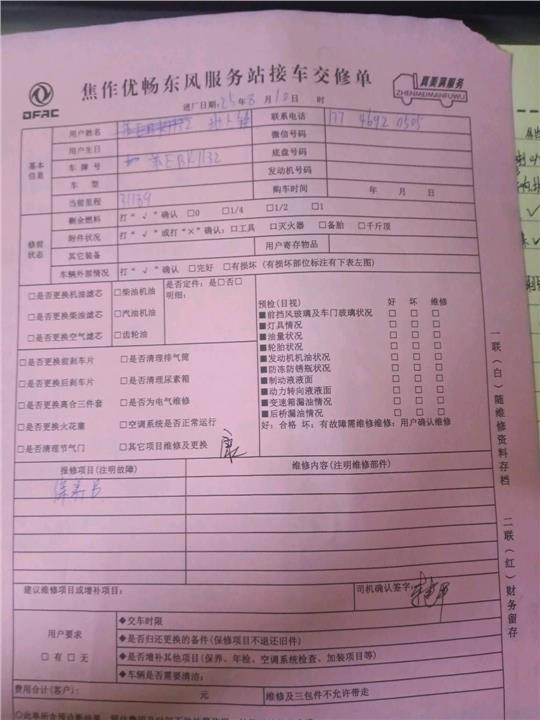 焦作优畅东风服务站接车交修单
DFAC
真美满服务
ZHENMEIMANFUWU
进厂日期:25年8月10日 时
基本信息
用户姓名 联系电话 177 4692 0505
用户生日 微信号码
车牌号 底盘号码
车型 发动机号码
当前里程 31139 购车时间 年 月 日
修前状态
剩余燃料 打“√”确认 □0 □1/4 □1/2 □1
附件状况 打“√”或打“×”确认:□工具 □灭火器 □备胎 □千斤顶
其它装备 用户寄存物品
车辆外部情况 打“√”确认 □完好 □有损坏 (有损坏部位标注有下表左图)
□是否更换机油滤芯 □柴油机油 是否定件:是□否□
明细:
□是否更换柴油滤芯 □汽油机油
□是否更换空气滤芯 □齿轮油
□是否更换前刹车片 □是否清理排气筒
□是否更换后刹车片 □是否清理尿素箱
□是否更换离合三件套 □是否为电气维修
□是否更换火花塞 □空调系统是否正常运行
□是否清理节气门 □其它项目维修及更换
预检(目视) 好 坏 维修
■前挡风玻璃及车门玻璃状况 □ □ □
■灯具情况 □ □ □
■油量状况 □ □ □
■轮胎状况 □ □ □
■发动机机油状况 □ □ □
■防冻防锈瓶状况 □ □ □
■制动液液面 □ □ □
■动力转向液液面 □ □ □
■变速箱漏油情况 □ □ □
■后桥漏油情况 □ □ □
好:合格 坏:有故障需维修维修:用户确认维修
报修项目(注明故障) 维修内容(注明维修部件)
保养
建议维修项目或增补项目: 司机确认签字:
用户要求
□有 □无
◆交车时限
◆是否归还更换的备件(保修项目不退还旧件)
◆是否增补其他项目(保养、年检、空调系统检查、加装项目等)
◆车辆是否需要清洁:
费用合计(客户): 元 维修及三包件不允许带走
一联(白)随维修资料存档
二联(红)财务留存